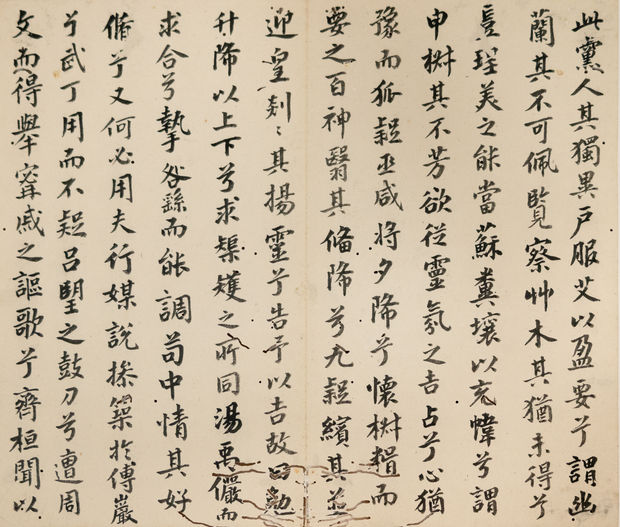 此黨人其獨異戶服艾以盈要兮謂幽
蘭其不可佩覽察艸木其猶未得兮
豈珵美之能當蘇糞壤以充幃兮謂
申椒其不芳欲從靈氛之吉占兮心猶
豫而狐疑巫咸將夕降兮懷椒糈而
要之百神翳其備降兮九疑繽其並
迎皇剡〻其揚靈兮告予以吉故曰勉
升降以上下兮求榘矱之所同湯禹儼而
求合兮摯咎繇而能調苟中情其好
脩兮又何必用夫行媒說操築於傅巖
兮武丁用而不疑呂望之鼓刀兮遭周
文而得舉甯戚之謳歌兮齊桓聞以